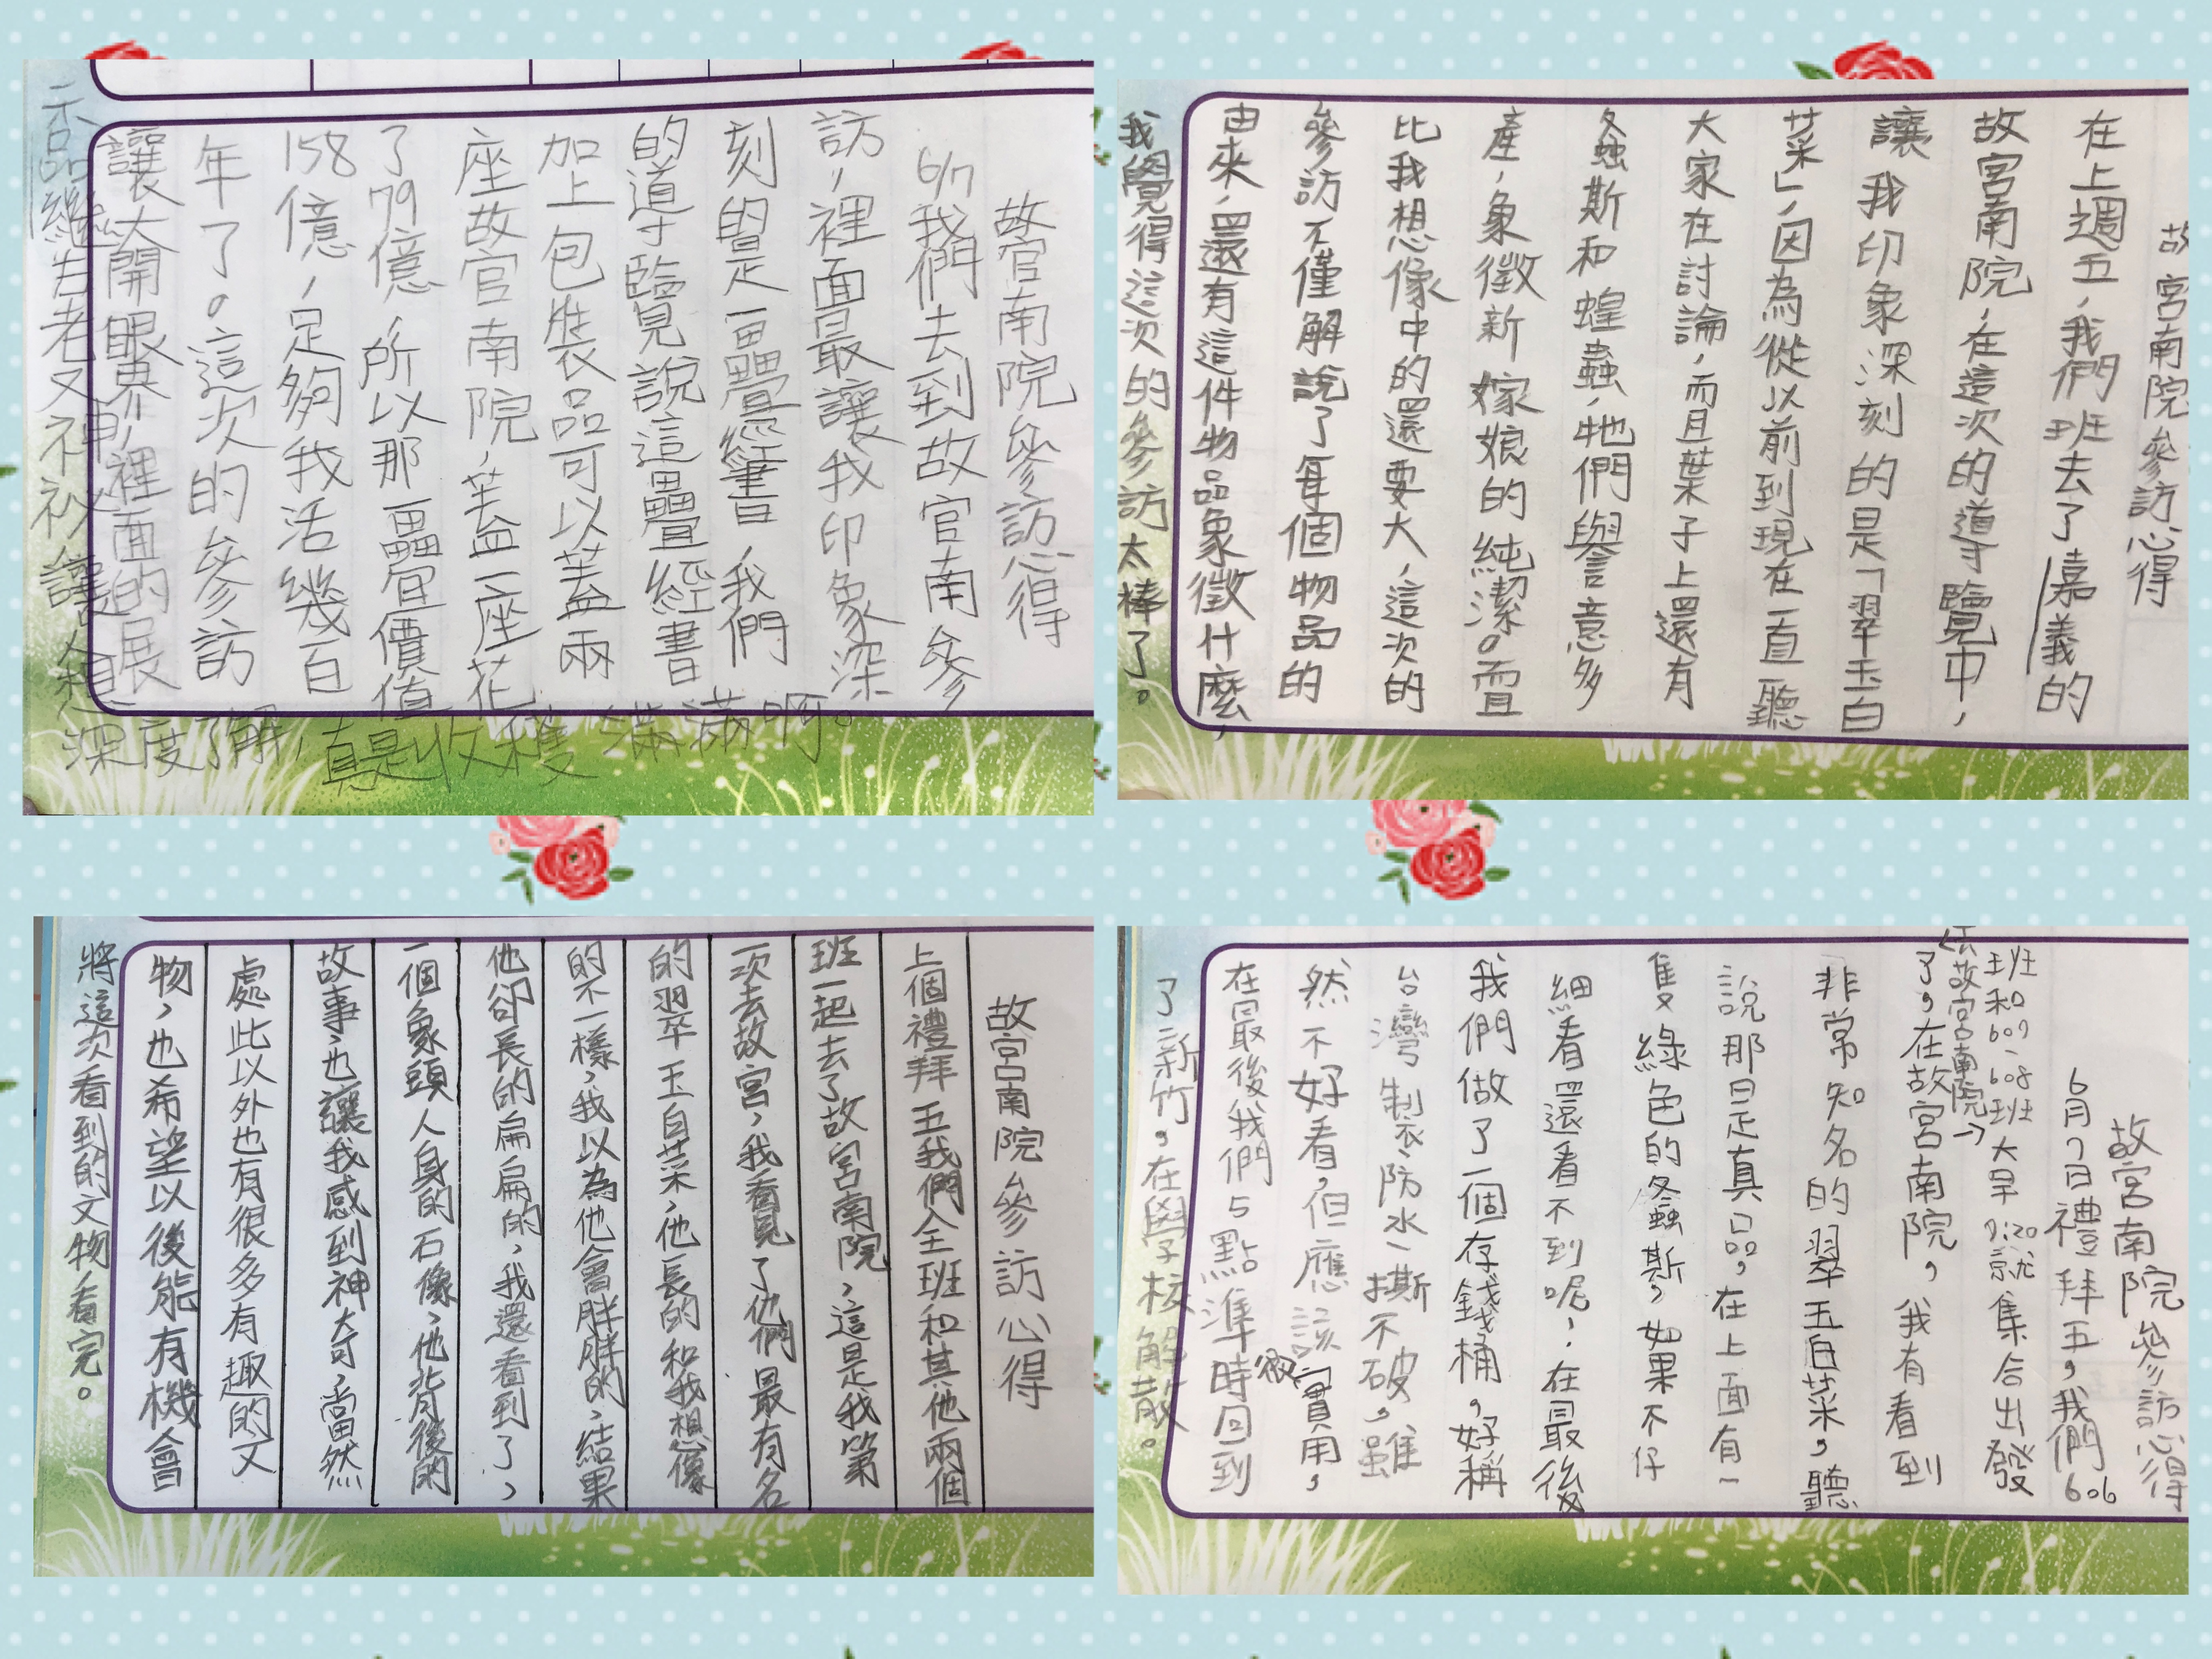 故官南院參訪心得
6/7我們去到故官南參
訪，裡面最讓我印象深
刻的是一疊經書，我們
的導覽說這疊經書
加上包裝品可以蓋兩
座故官南院，蓋一座花
了79億，所以那一疊價值
158億，足夠我活幾百
年了。這次的參訪
讓大開眼界，裡面的展
示品繼古老又神祕讓人想
深度了解，真是收穫滿滿啊。
故宮南院參訪心得
在上週五，我們班去了嘉義的
故宮南院，在這次的導覽中，
讓我印象深刻的是「翠玉白
菜」，因為從以前到現在一直聽
大家在討論，而且葉子上還有
螽斯和蝗蟲，牠們譽意多
產，象徵新嫁娘的純潔。而且
比我想像中的還要大，這次的
參訪不僅解說了每個物品的
由來，還有這件物品象徵什麼，
我覺得這次的參訪太棒了。
故宮南院參訪心得
上個禮拜五我們全班和其他兩個
班一起去了故宮南院，這是我第
一次去故宮，我看見了他們最有名
的翠玉白菜，他長的和我想像
的不一樣，我以為他會胖胖的，結果
他卻長的扁扁的，我還看到了，
一個象頭人身的石像，他背後的
故事，也讓我感到神奇，當然
處此以外也有很多有趣的文
物，也希望以後能有機會
將這次看到的文物，看完。
故宮南院參訪心得
6月7日禮拜五，我們606
班和607、608班大早7:20就集合出發
去故宮南院→
了，在故宮南院，我有看到
非常知名的翠玉白菜，聽
說那是真品，在上面有一
隻綠色的螽斯，如果不仔
細看還看不到呢，在最後
我們做了一個存錢桶，好稱
台灣製、防水、撕不破，雖
然不好看，但應該很實用，
在最後我們5點準時回到
了新竹，在學校解散。